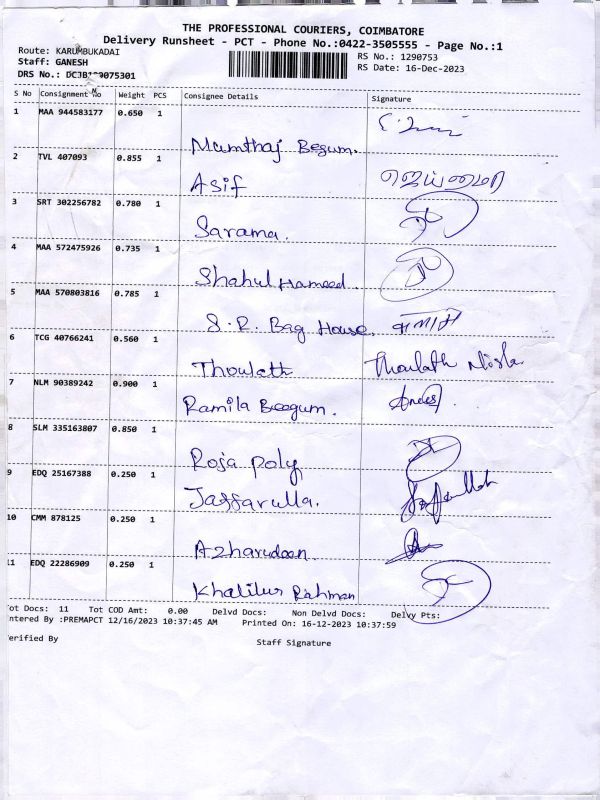 THE PROFESSIONAL COURIERS, COIMBATORE
Delivery Runsheet - PCT - Phone No.:0422-3505555 - Page No.:1
Route: KARUMBUKADAI
RS No.: 1290753
Staff: GANESH
RS Date: 16-Dec-2023
DRS No.:
S No Consignment No Weight PCS Consignee Details Signature
1 MAA 944583177 0.650 1
Mumthaj Begum.
2 TVL 407093 0.855 1
Asif
3 SRT 302256782 0.780 1
Sarama.
4 MAA 572475926 0.735 1
Shahul Hameed.
5 MAA 570803816 0.785 1
S.R. Bag House.
6 TCG 40766241 0.560 1
Thoulath Thoulath Nisha
7 NLM 90389242 0.900 1
Ramila Beegum.
8 SLM 335163807 0.850 1
Roja poly
9 EDQ 25167388 0.250 1
Jaffarulla.
10 CMM 878125 0.250 1
Azharudeen
11 EDQ 22286909 0.250 1
Khalilur Rahman
Tot Docs: 11 Tot COD Amt: 0.00 Delvd Docs: Non Delvd Docs: Delvy Pts:
Entered By :PREMAPCT 12/16/2023 10:37:45 AM Printed On: 16-12-2023 10:37:59
Verified By Staff Signature